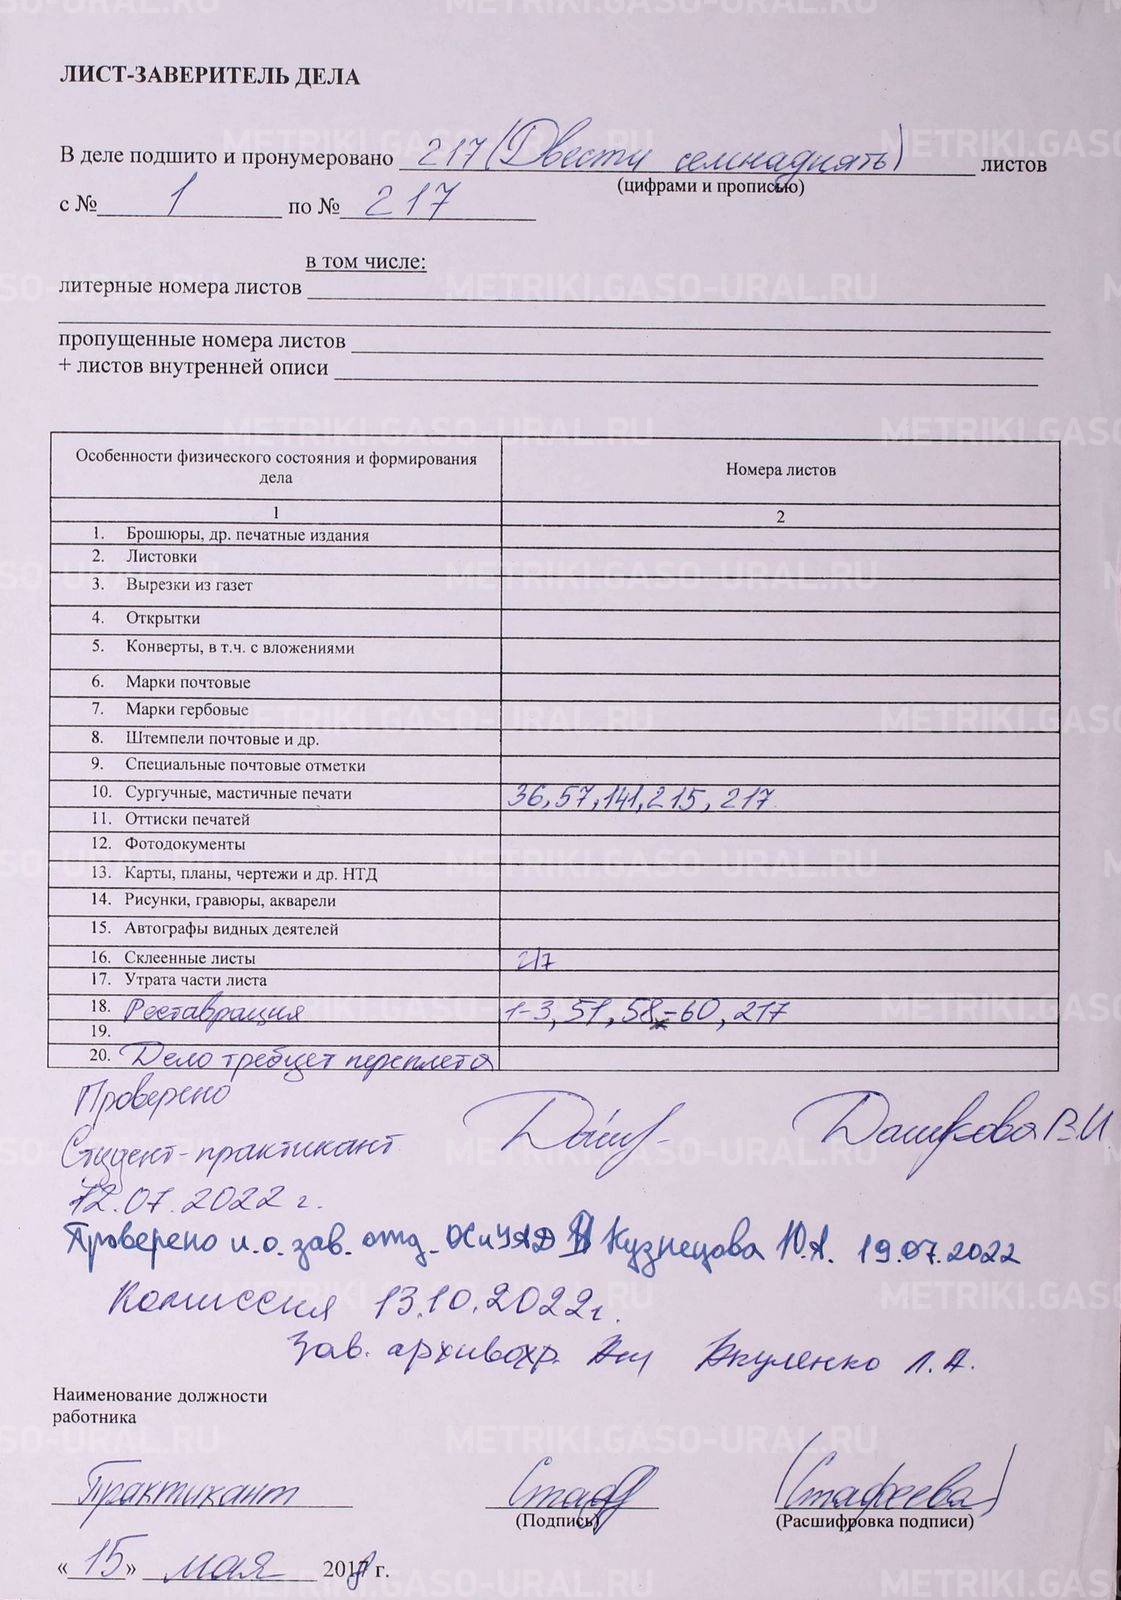 ЛИСТ-ЗАВЕРИТЕЛЬ ДЕЛА
В деле подшито и пронумеровано 217 (Двести семнадцать) листов
(цифрами и прописью)
с № 1 по № 217
в том числе:
литерные номера листов
пропущенные номера листов
+ листов внутренней описи
Особенности физического состояния и формирования дела Номера листов
1 2
1. Брошюры, др. печатные издания
2. Листовки
3. Вырезки из газет
4. Открытки
5. Конверты, в т.ч. с вложениями
6. Марки почтовые
7. Марки гербовые
8. Штемпели почтовые и др.
9. Специальные почтовые отметки
10. Сургучные, мастичные печати 36, 57, 141, 215, 217
11. Оттиски печатей
12. Фотодокументы
13. Карты, планы, чертежи и др. НТД
14. Рисунки, гравюры, акварели
15. Автографы видных деятелей
16. Склеенные листы 217
17. Утрата части листа
18. Реставрация 1-3, 51, 58-60, 217
19.
20. Дело требует переплета
Проверено
Студент-практикант Дашкова В.И
12.07.2022 г.
Проверено и.о. зав. отд. ОХиУАД Кузнецова Ю.А. 19.07.2022
Комиссия 13.10.2022г.
Зав. архивохр. Акуленко Л.А.
Наименование должности
работника
Практикант (Стафеева)
(Подпись) (Расшифровка подписи)
«15» мая 2018 г.
METRIKI.GASO-URAL.RU